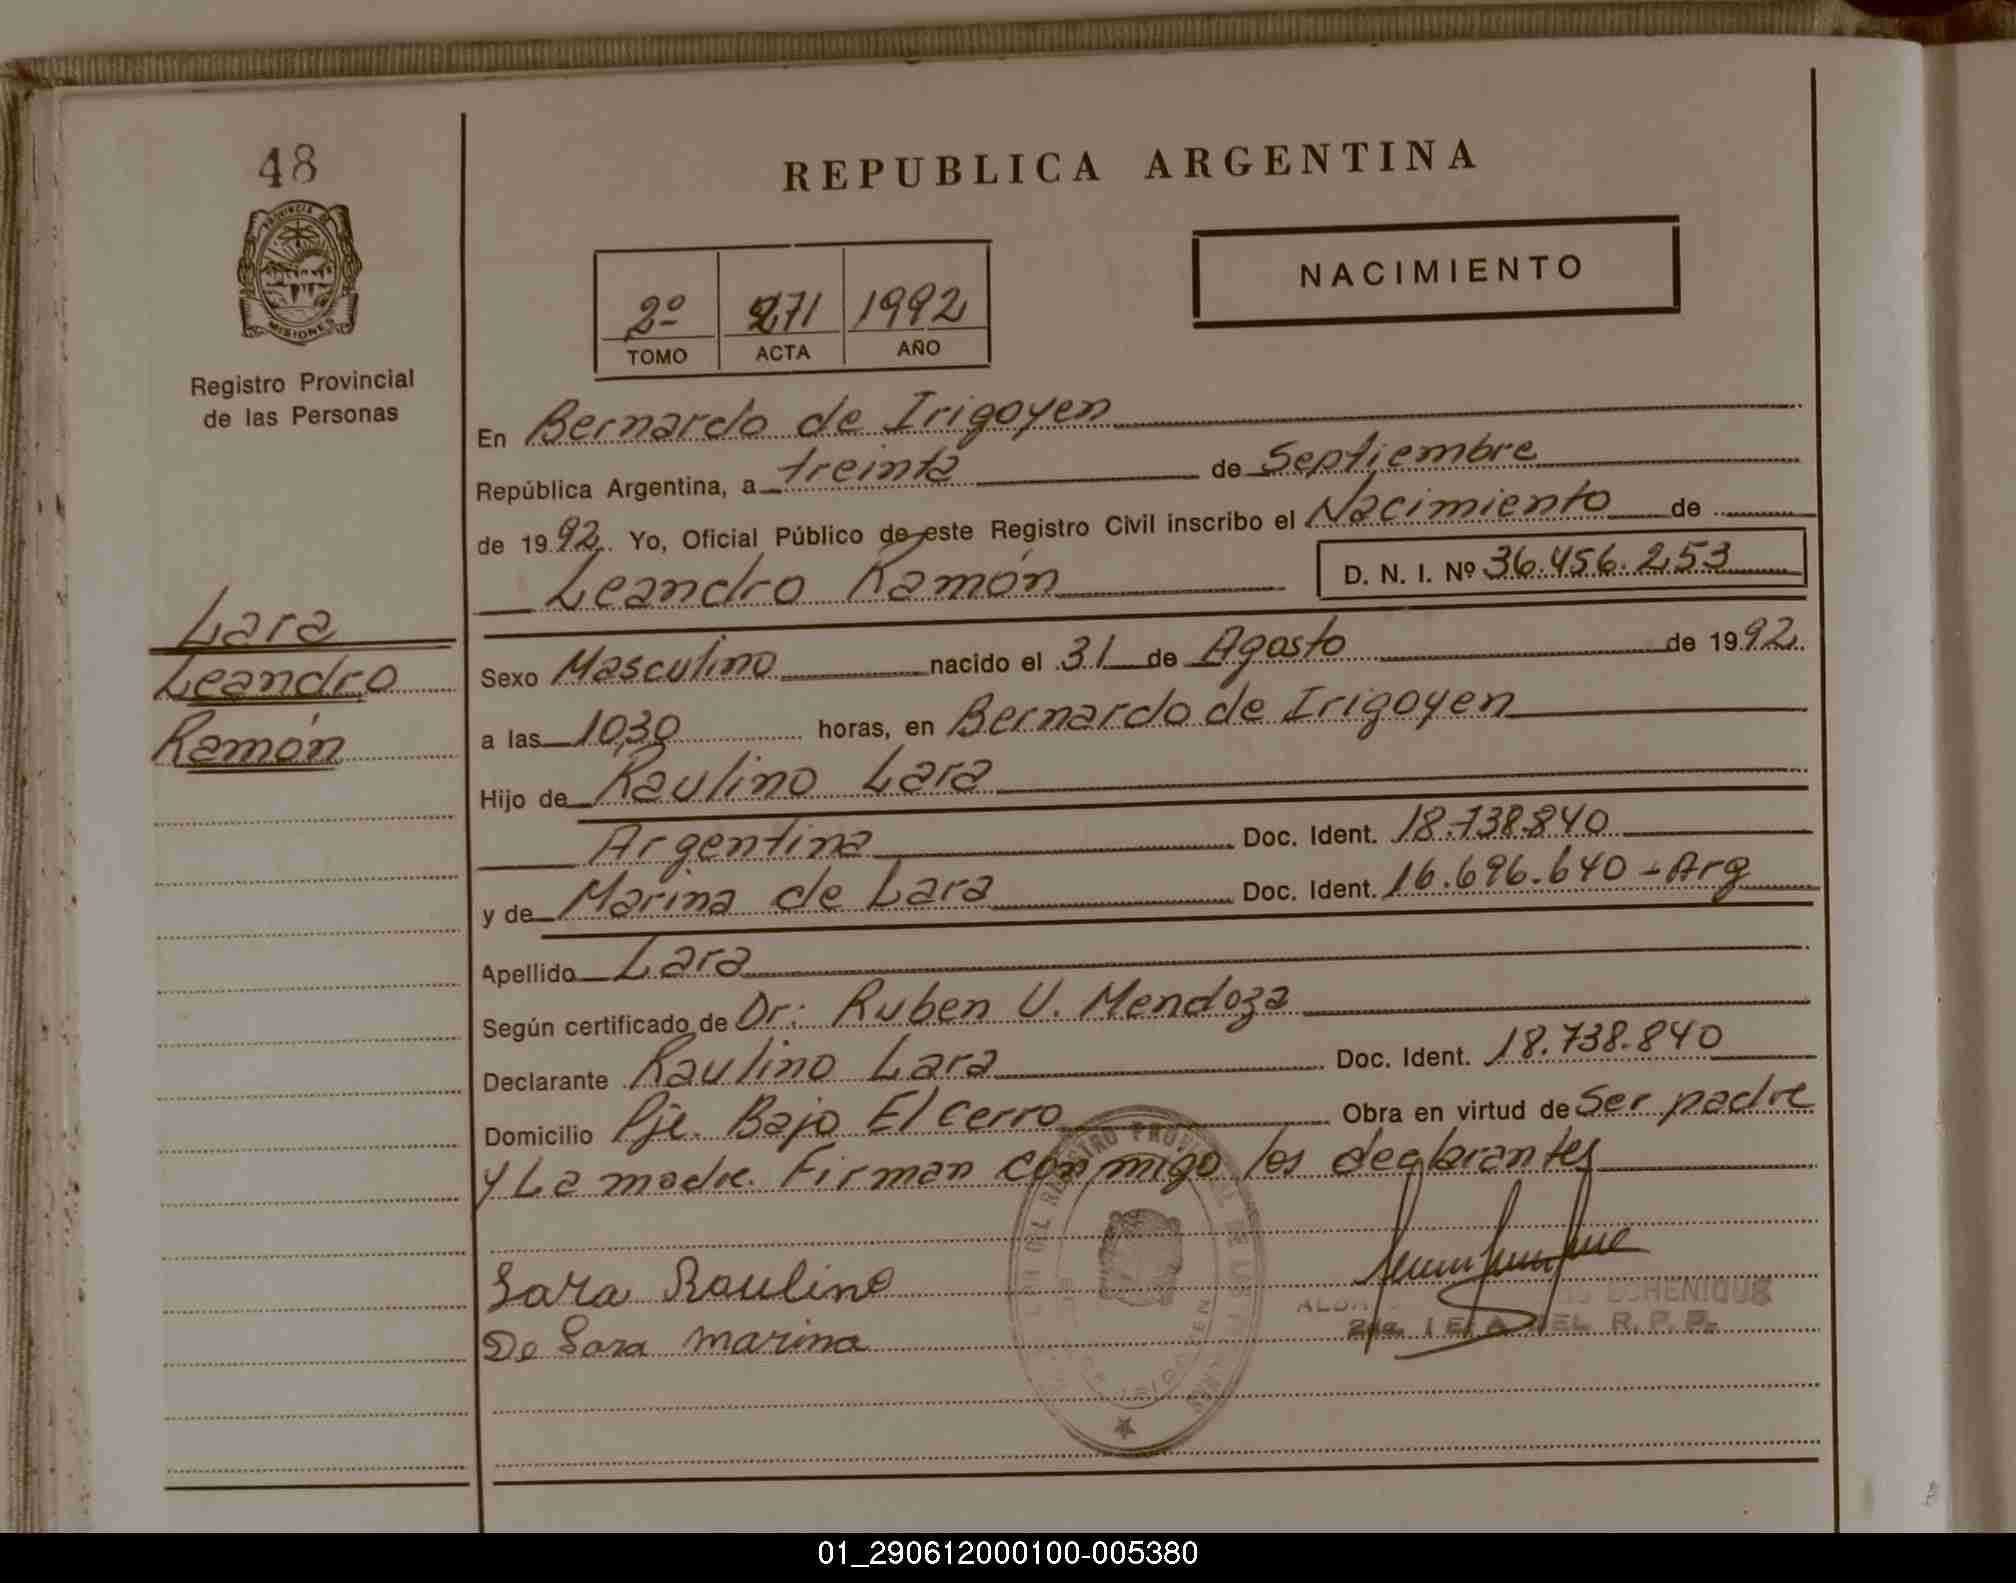 48
PROVINCIA DE
MISIONES
Registro Provincial
de las Personas
Lara
Leandro
Ramón
REPUBLICA ARGENTINA
NACIMIENTO
2º 271 1992
TOMO ACTA AÑO
En Bernardo de Irigoyen
República Argentina, a treinta de Septiembre
de 1992. Yo, Oficial Público de este Registro Civil inscribo el Nacimiento de
Leandro Ramón D. N. I. Nº 36.456.253
Sexo Masculino nacido el 31 de Agosto de 1992.
a las 10,30 horas, en Bernardo de Irigoyen
Hijo de Raulino Lara
Argentina Doc. Ident. 18.738.840
y de Marina de Lara Doc. Ident. 16.696.640 - Arg
Apellido Lara
Según certificado de Dr: Ruben U. Mendoza
Declarante Raulino Lara Doc. Ident. 18.738.840
Domicilio Pje. Bajo El Cerro Obra en virtud de Ser padre
y La madre. Firman conmigo los declarantes
Lara Raulino
De Lara marina
DEL R.P.P.
01_290612000100-005380